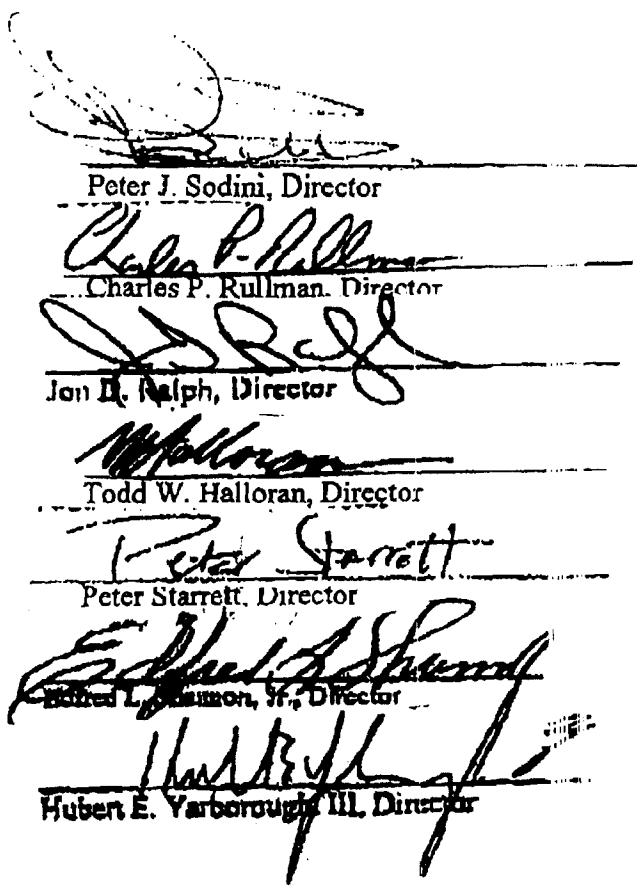 Peter J. Sodini, Director
Charles P. Rullman
Charles P. Rullman, Director
Jon D. Ralph, Director
Todd W. Halloran, Director
Peter Starrett
Peter Starrett, Director
Edfred L. Shannon, Jr., Director
Hubert E. Yarborough III, Director